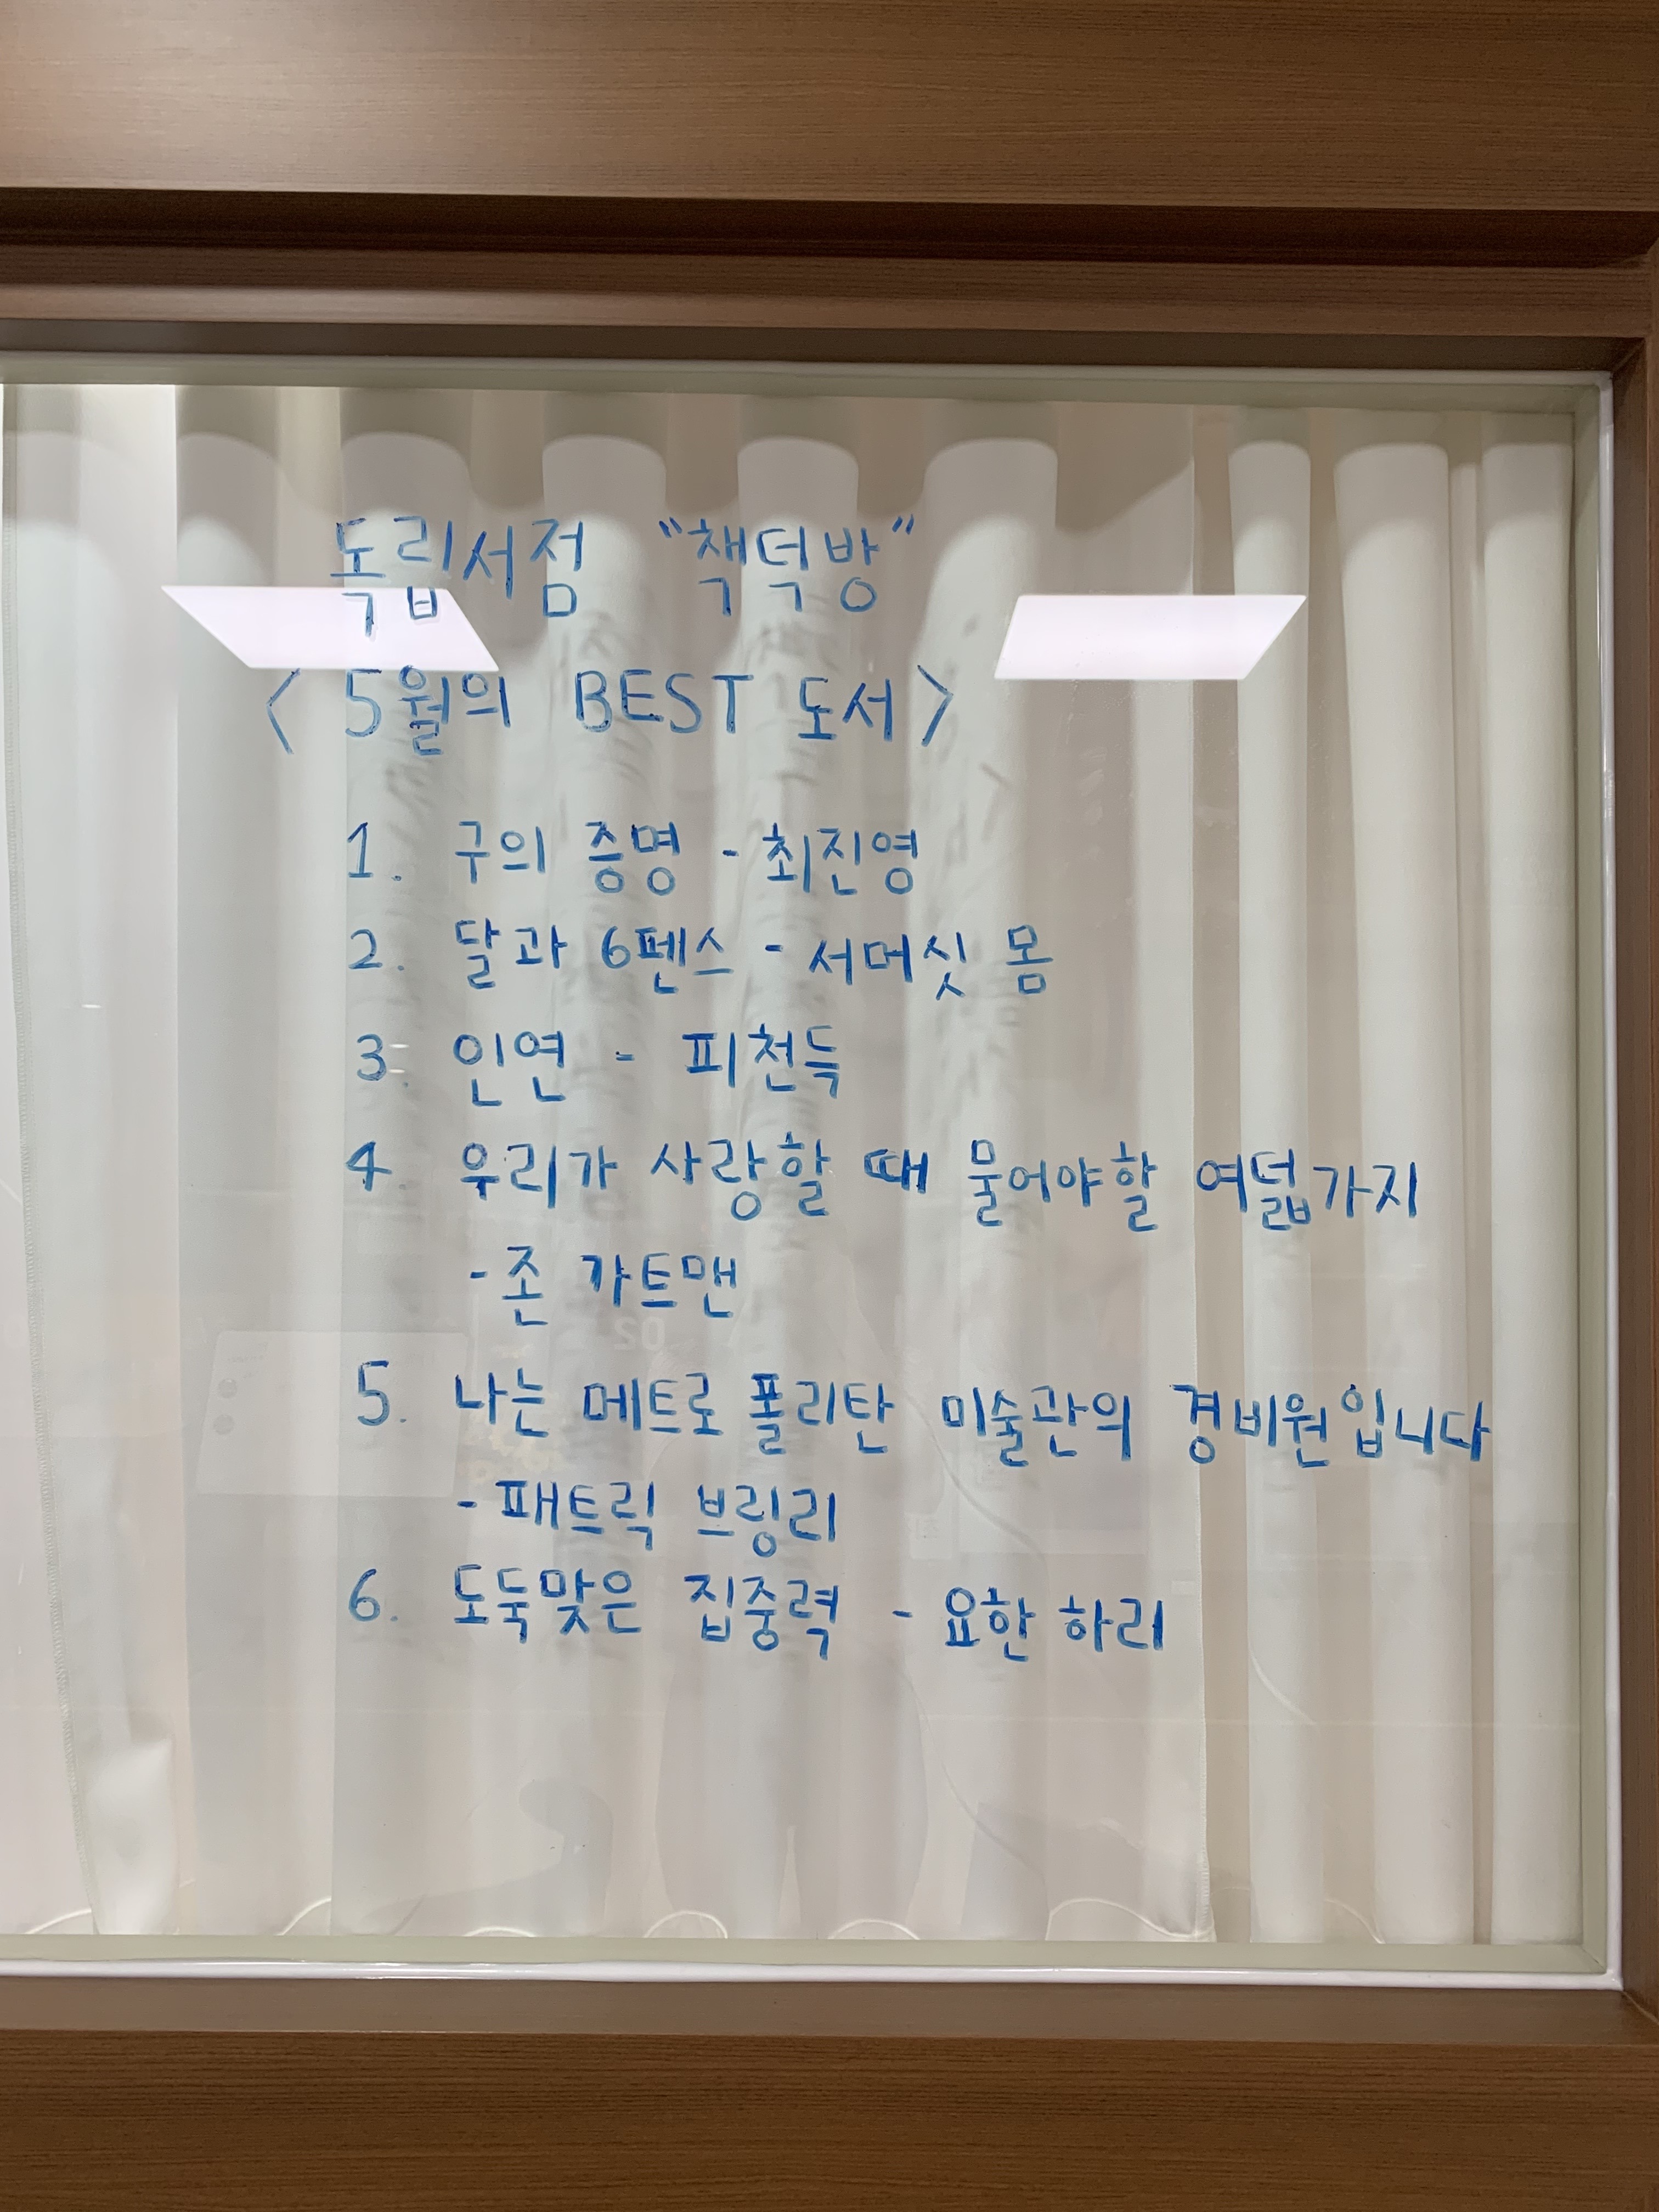 독립서점 “책덕방”
< 5월의 BEST 도서 >
1. 구의 증명 - 최진영
2. 달과 6펜스 - 서머싯 몸
3. 인연 - 피천득
4. 우리가 사랑할 때 물어야할 여덟가지
- 존 가트맨
5. 나는 메트로 폴리탄 미술관의 경비원입니다
- 패트릭 브링리
6. 도둑맞은 집중력 - 요한 하리